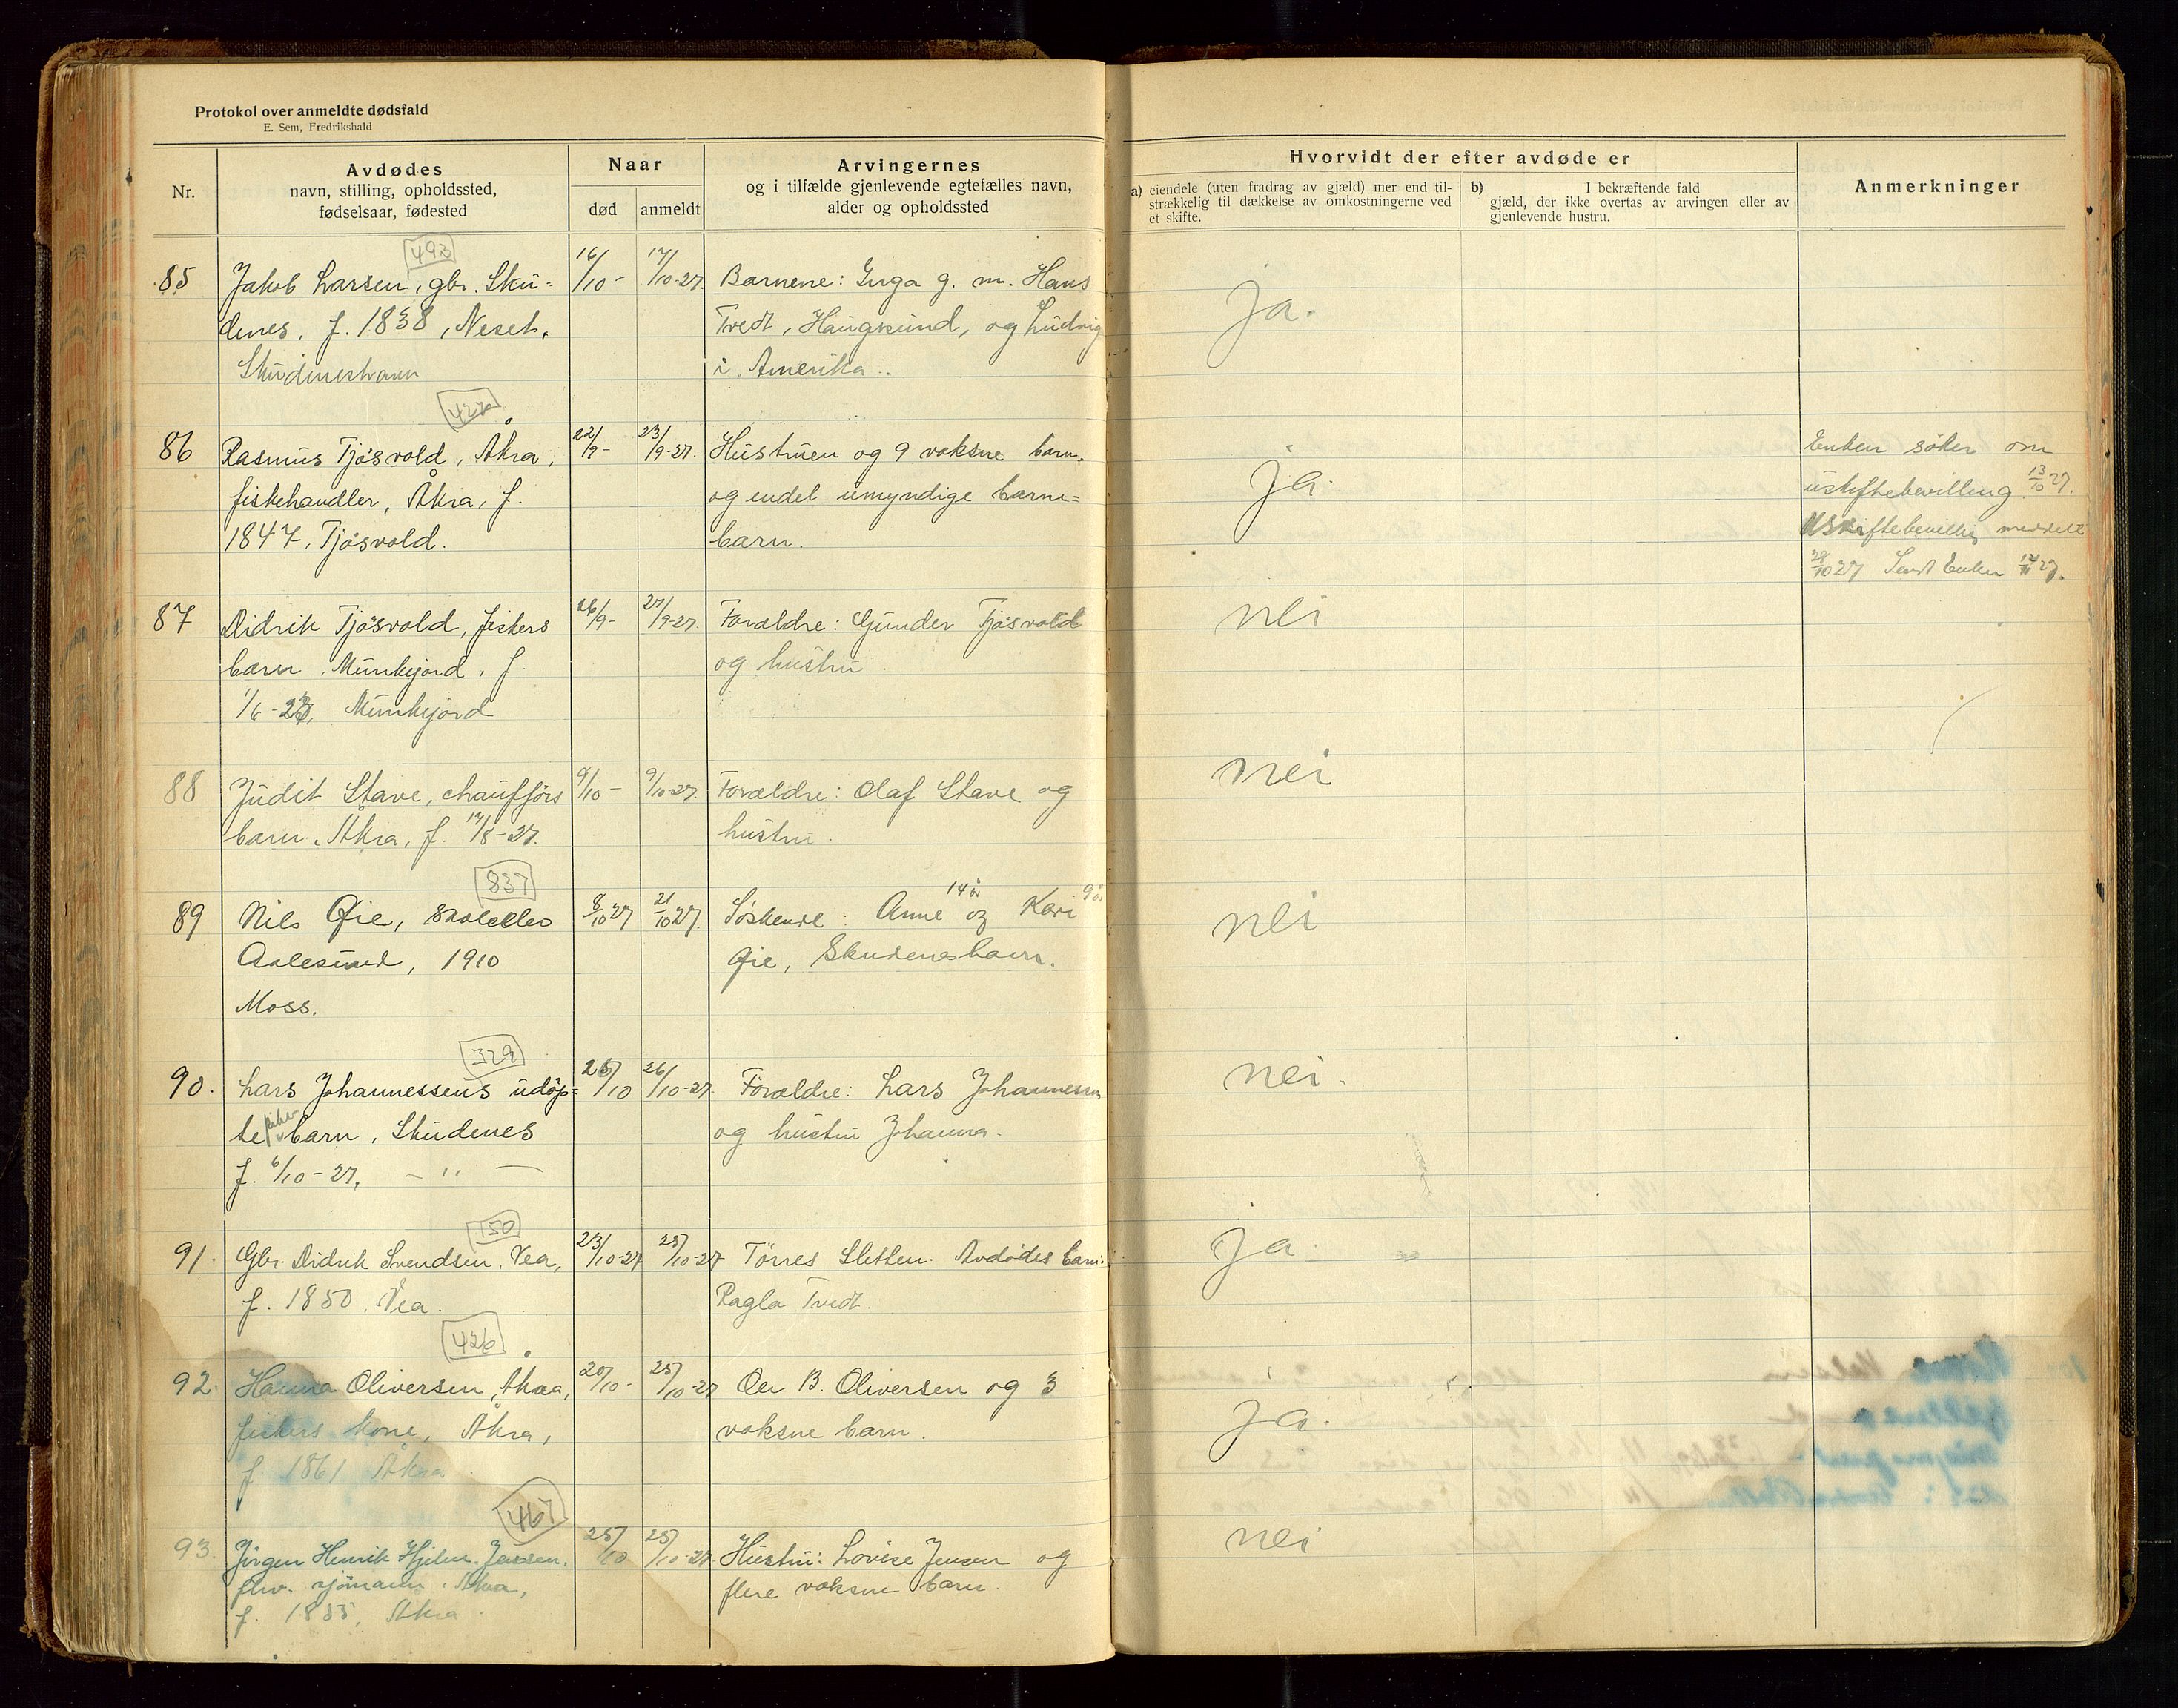 Protokol over anmeldte dødsfald
E. Sem, Fredrikshald
Nr.
Avdødes
navn, stilling, opholdssted,
fødselsaar, fødested
Naar
død
anmeldt
Arvingernes
og i tilfælde gjenlevende egtefælles navn,
alder og opholdssted
Hvorvidt der efter avdøde er
a) eiendele (uten fradrag av gjæld) mer end til-
strækkelig til dækkelse av omkostningerne ved
et skifte.
b) I bekræftende fald
gjæld, der ikke overtas av arvingen eller av
gjenlevende hustru.
Anmerkninger
493
85 Jakob Larsen, gbr. Sku- 16/10- 17/10-27. Barnene: Inga g. m. Hans
denes. f. 1838, Neset, Tvedt, Haugesund, og Ludvig
Skudineshavn i Amerika..
ja.
427
86 Rasmus Tjøsvold, Åkra, 22/9- 23/9-27. Hustruen og 9 voksne barn,
fiskehandler, Åkra, f. og endel umyndige barne-
1847, Tjøsvold. barn.
ja.
Enken søker om
uskiftebevilling 13/10 27.
Uskiftebevillig meddelt
28/10 27 Sendt Enken
87 Didrik Tjøsvold, fiskers 26/9- 27/9-27. Forældre: Gunder Tjøsvold
barn, Munkejord, f. og hustru.
1/6-27, Munkejord
nei
88 Judit Stave, chaufførs 9/10- 9/10-27. Forældre: Olaf Stave og
barn, Åkra, f. 17/8-27. hustru.
nei
837
89 Nils Øie, skoleelev 8/10 27 21/10 27. Søskende: Anne 14 år og Kari 9 år
Aalesund, 1910 Øie, Skudeneshavn.
Moss.
nei
329
90. Lars Johannessens udøp- 25/10 26/10-27. Forældre: Lars Johannessen
te pike barn, Skudenes og hustru Johanna.
f. 6/10-27, - " -
nei.
150
91. Gbr. Didrik Svendsen, Vea, 23/10-27 25/10-27 Tørres Sletten. Avdødes barn:
f. 1850, Vea. Ragla Tvedt.
ja.
426
92. Hanna Oliversen, Åkra, 20/10- 25/10-27 Ole B. Oliversen og 3
fiskers kone, Åkra, voksne barn.
f 1861 Åkra
ja.
467
93. Jørgen Henrik Hjelm Jensen, 25/10 25/10-27. Hustru: Lovise Jensen og
fhv. sjømann, Åkra, flere voksne barn.
f. 1855, Åkra.
nei